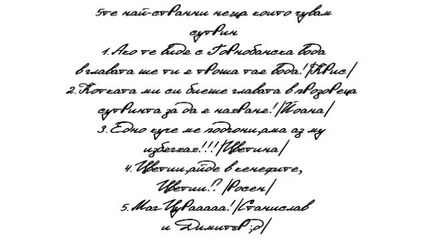 5те най-странни неща които чувам
сутрин
1. Ако те видя с Горнобанска вода
в главата ще ти я троша тае вода! /Крис/
2. Котката ми си биеше главата в прозореца
сутринта за да я нахраня! /Йоана/
3. Едно куче ме подгони, ама аз му
избегках!!! /Цветина/
4. Цветии, айде в кенефите,
Цветии!? /Росен/
5. Маг Цураааааа! /Станислав
и Димитър ;д/